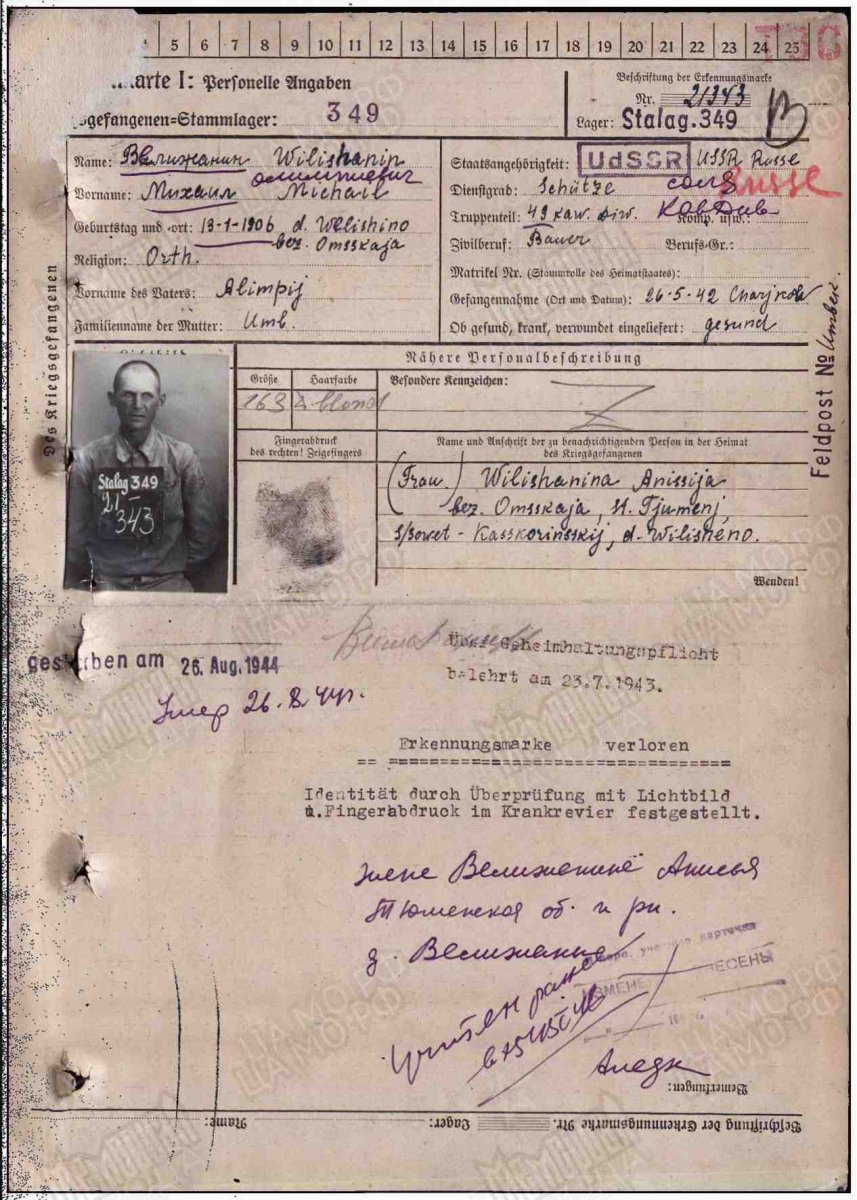 4 5 6 7 8 9 10 11 12 13 14 15 16 17 18 19 20 21 22 23 24 25
karte I: Personelle Angaben
sgefangenen=Stammlager: 349
Beschriftung der Erkennungsmarke
Nr. 21343
Lager: Stalag.349
Des Kriegsgefangenen
Name: Велижанин Wilishanin
Vorname: Михаил Michail
Geburtstag und =ort: 13-1-1906 d. Welishino
bez. Omsskaja
Religion: Orth.
Vorname des Vaters: Alimpij
Familienname der Mutter: Umb.
Staatsangehörigkeit: UdSSR USSR Russe
Russe
Dienstgrad: Schütze солд
Truppenteil: 49 kaw. Diw. Кав Див Komp. usw.:
Zivilberuf: Bauer Berufs-Gr.:
Matrikel Nr. (Stammrolle des Heimatstaates):
Gefangennahme (Ort und Datum): 26-5-42 Charjkow
Ob gesund, krank, verwundet eingeliefert: gesund
Feldpost № Unbek.
Nähere Personalbeschreibung
Größe Haarfarbe Besondere Kennzeichen:
163 blond
Fingerabdruck
des rechten! Zeigefingers
Name und Anschrift der zu benachrichtigenden Person in der Heimat
des Kriegsgefangenen
(Frau) Wilishanina Anissija
bez. Omsskaja, st. Tjumenj,
s/sowet - Kasskorinsskij, d. Wilisheno.
Wenden!
Stalag 349
21
343
gestorben am 26. Aug. 1944
Умер 26.8.44г.
Über Geheimhaltungspflicht
belehrt am 23.7.1943.
Erkennungsmarke verloren
== ==============================
Identität durch Überprüfung mit Lichtbild
u.Fingerabdruck im Krankrevier festgestellt.
жене Велижанине Анисья
Тюменская об. и рн.
д. Велижанье
карточка
ИЗМЕНЕ ЕСЕНЫ
учтен ранее
Bemerkungen:
Beschriftung der Erkennungsmarke Nr. Lager: Name: